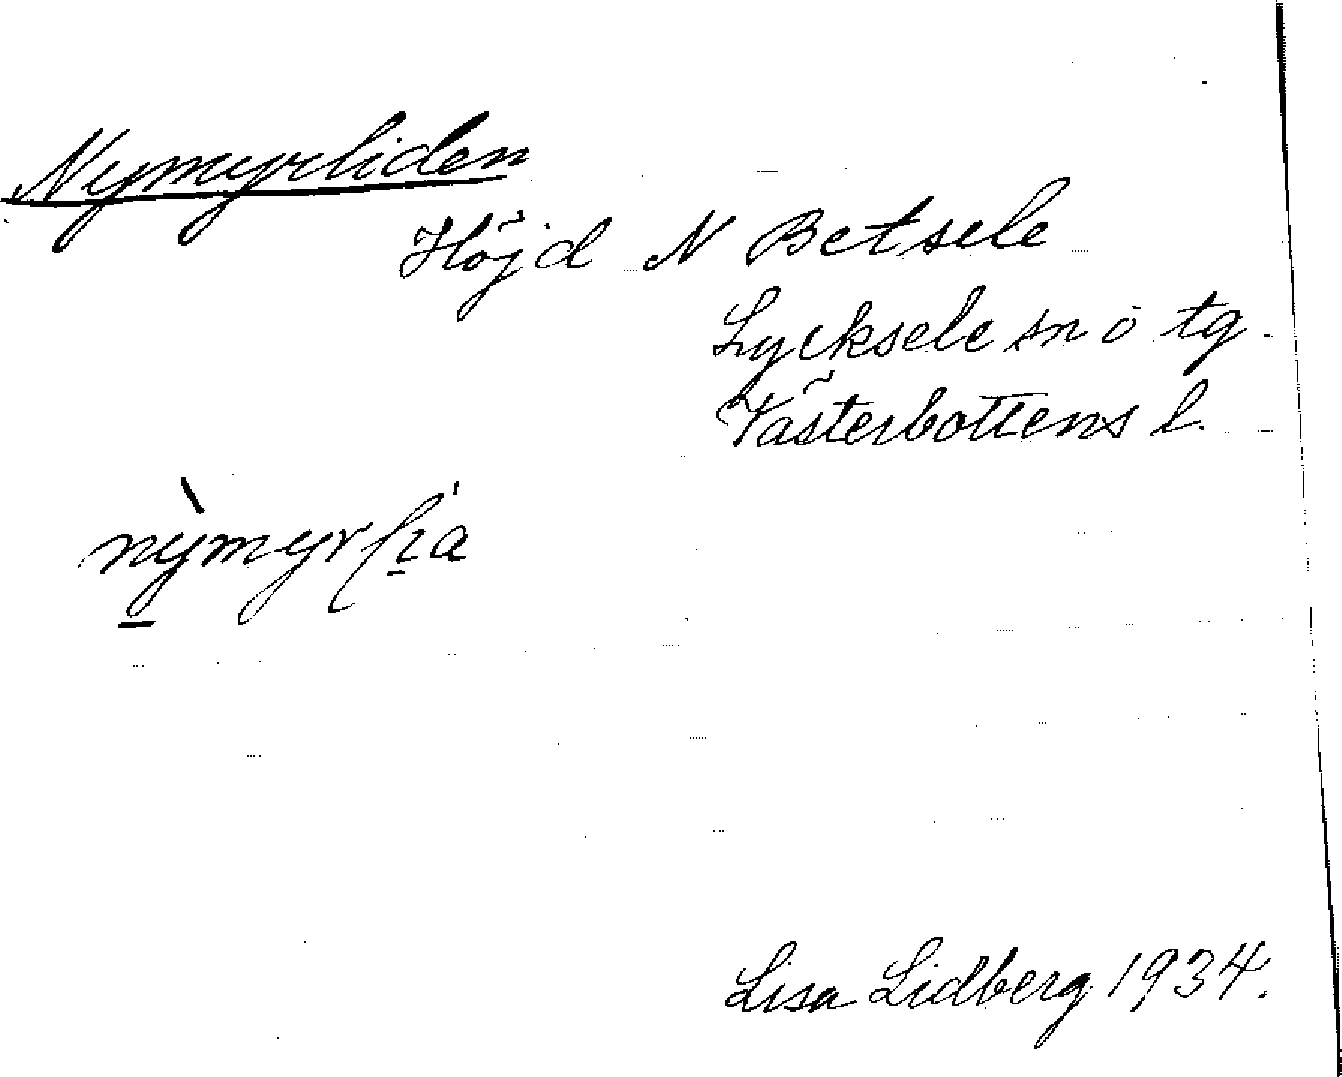 Nymyrliden
Höjd N Betsele
Lycksele sn o tg.
Västerbottens l.
Lisa Lidberg 1934.